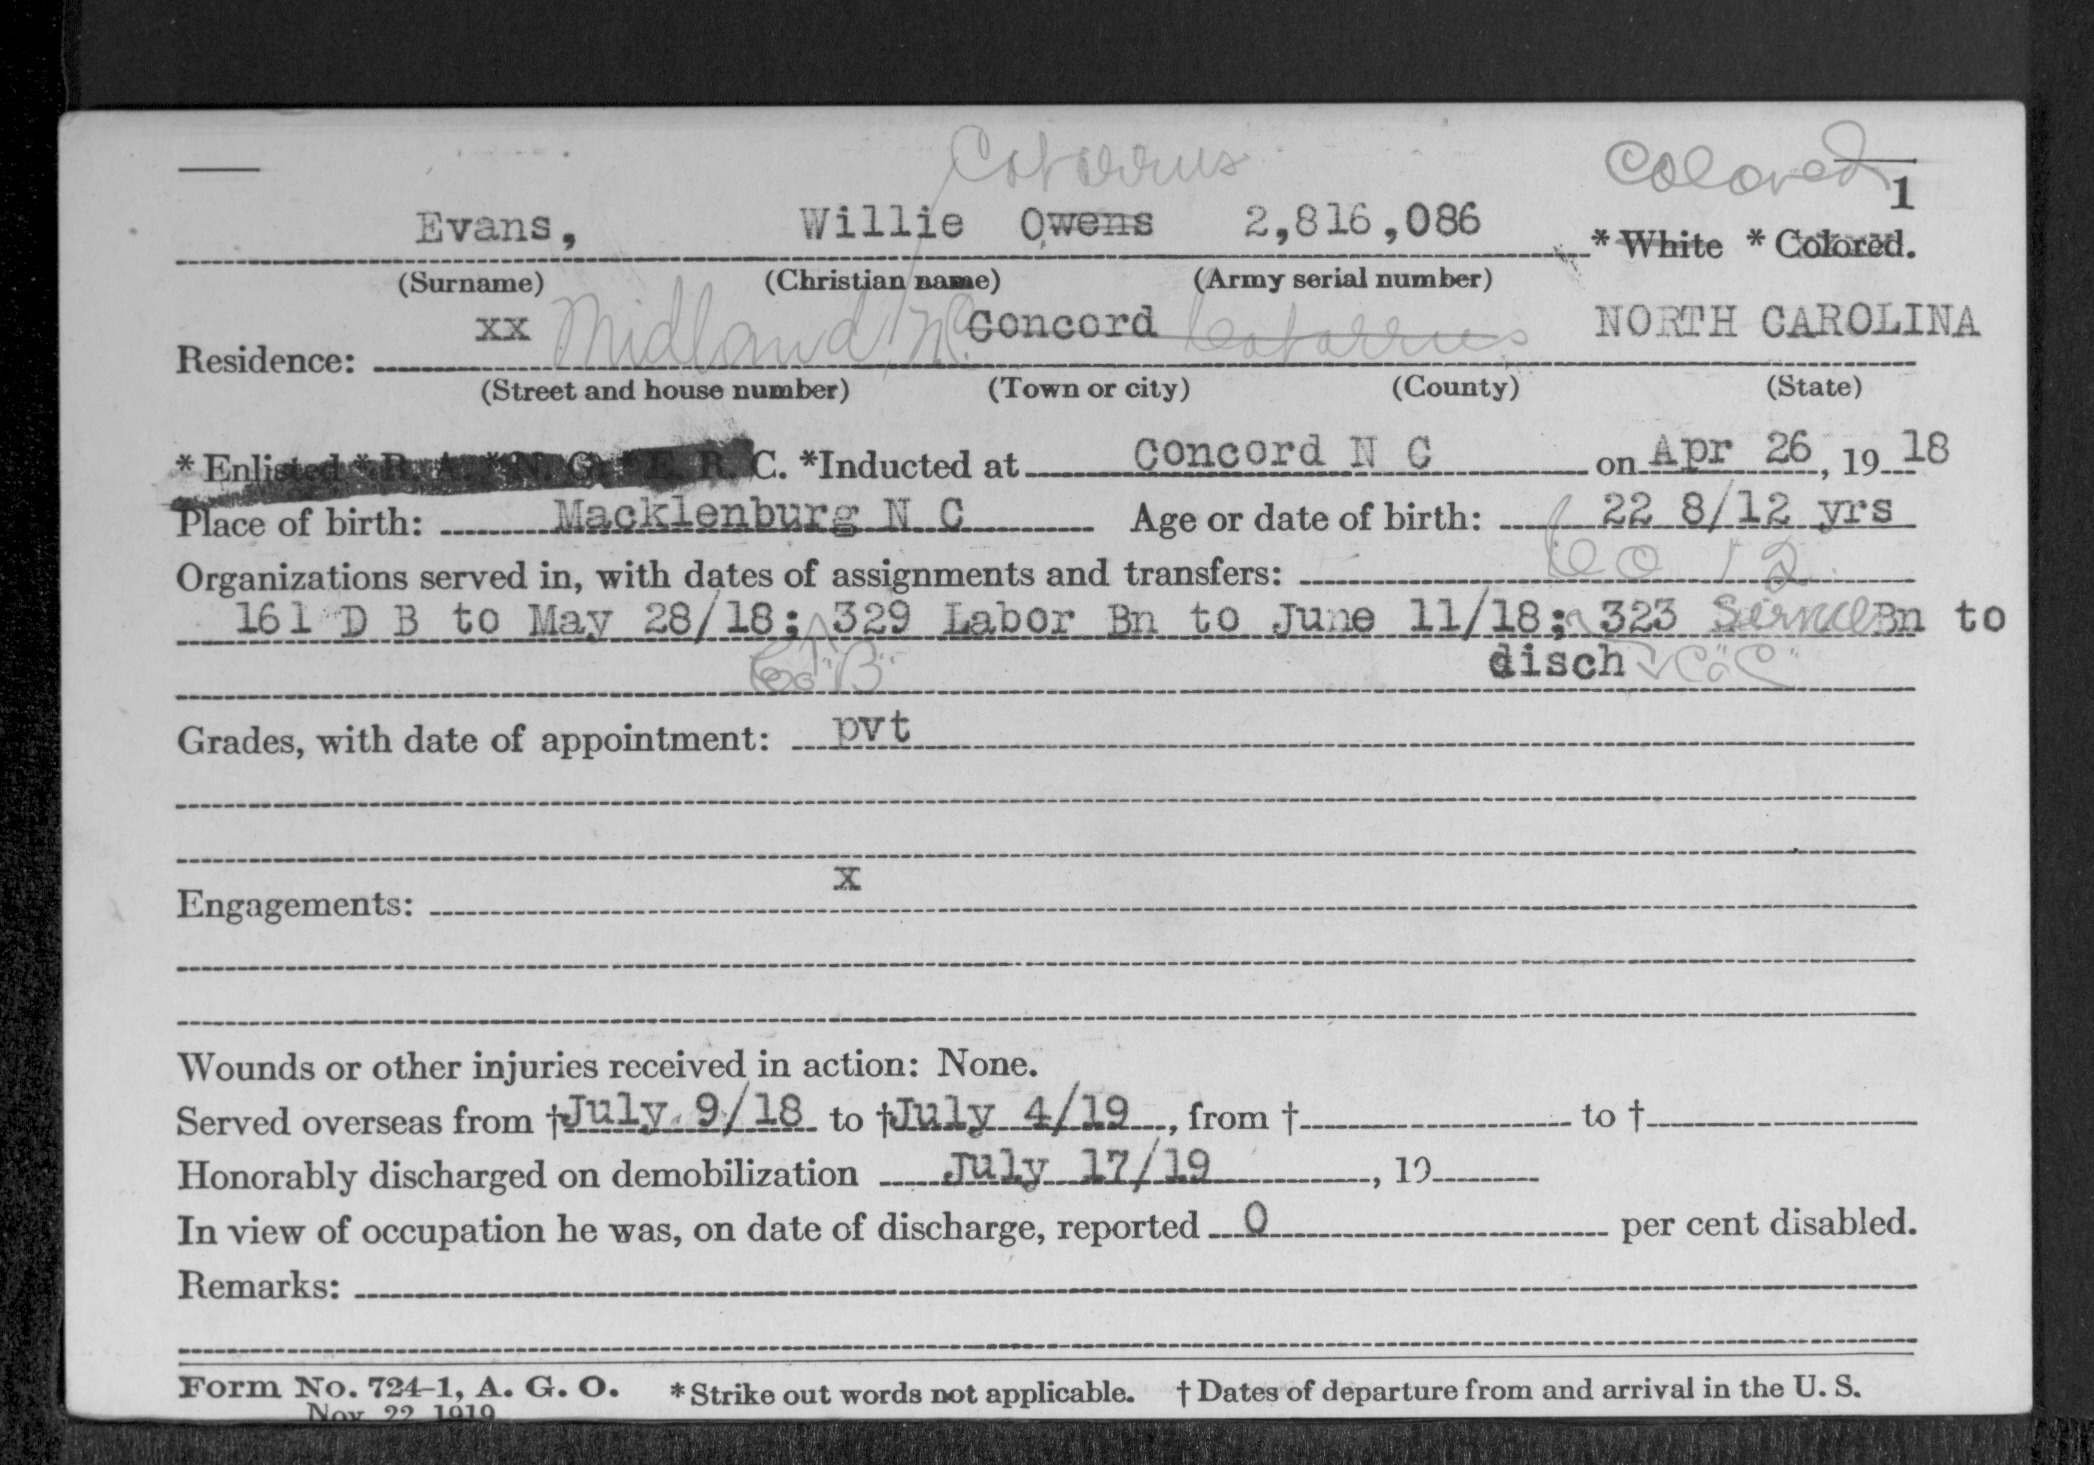 Cabarrus Colored
1
Evans, Willie Owens 2,816,086 * White * Colored.
(Surname) (Christian name) (Army serial number)
xx Midland N.C. Concord Cabarrus NORTH CAROLINA
Residence:
(Street and house number) (Town or city) (County) (State)
* Enlisted * R. A. * N. G. * E. R. C. *Inducted at Concord N C on Apr 26, 19 18
Place of birth: Macklenburg N C Age or date of birth: 22 8/12 yrs
Organizations served in, with dates of assignments and transfers: Co 12
161 D B to May 28/18; 329 Labor Bn to June 11/18; 323 Service Bn to
Co "B" disch Co "C"
Grades, with date of appointment: pvt
x
Engagements:
Wounds or other injuries received in action: None.
Served overseas from †July 9/18 to †July 4/19, from † to †
Honorably discharged on demobilization July 17/19, 19
In view of occupation he was, on date of discharge, reported 0 per cent disabled.
Remarks:
Form No. 724-1, A. G. O. * Strike out words not applicable. † Dates of departure from and arrival in the U. S.
Nov. 22, 1919